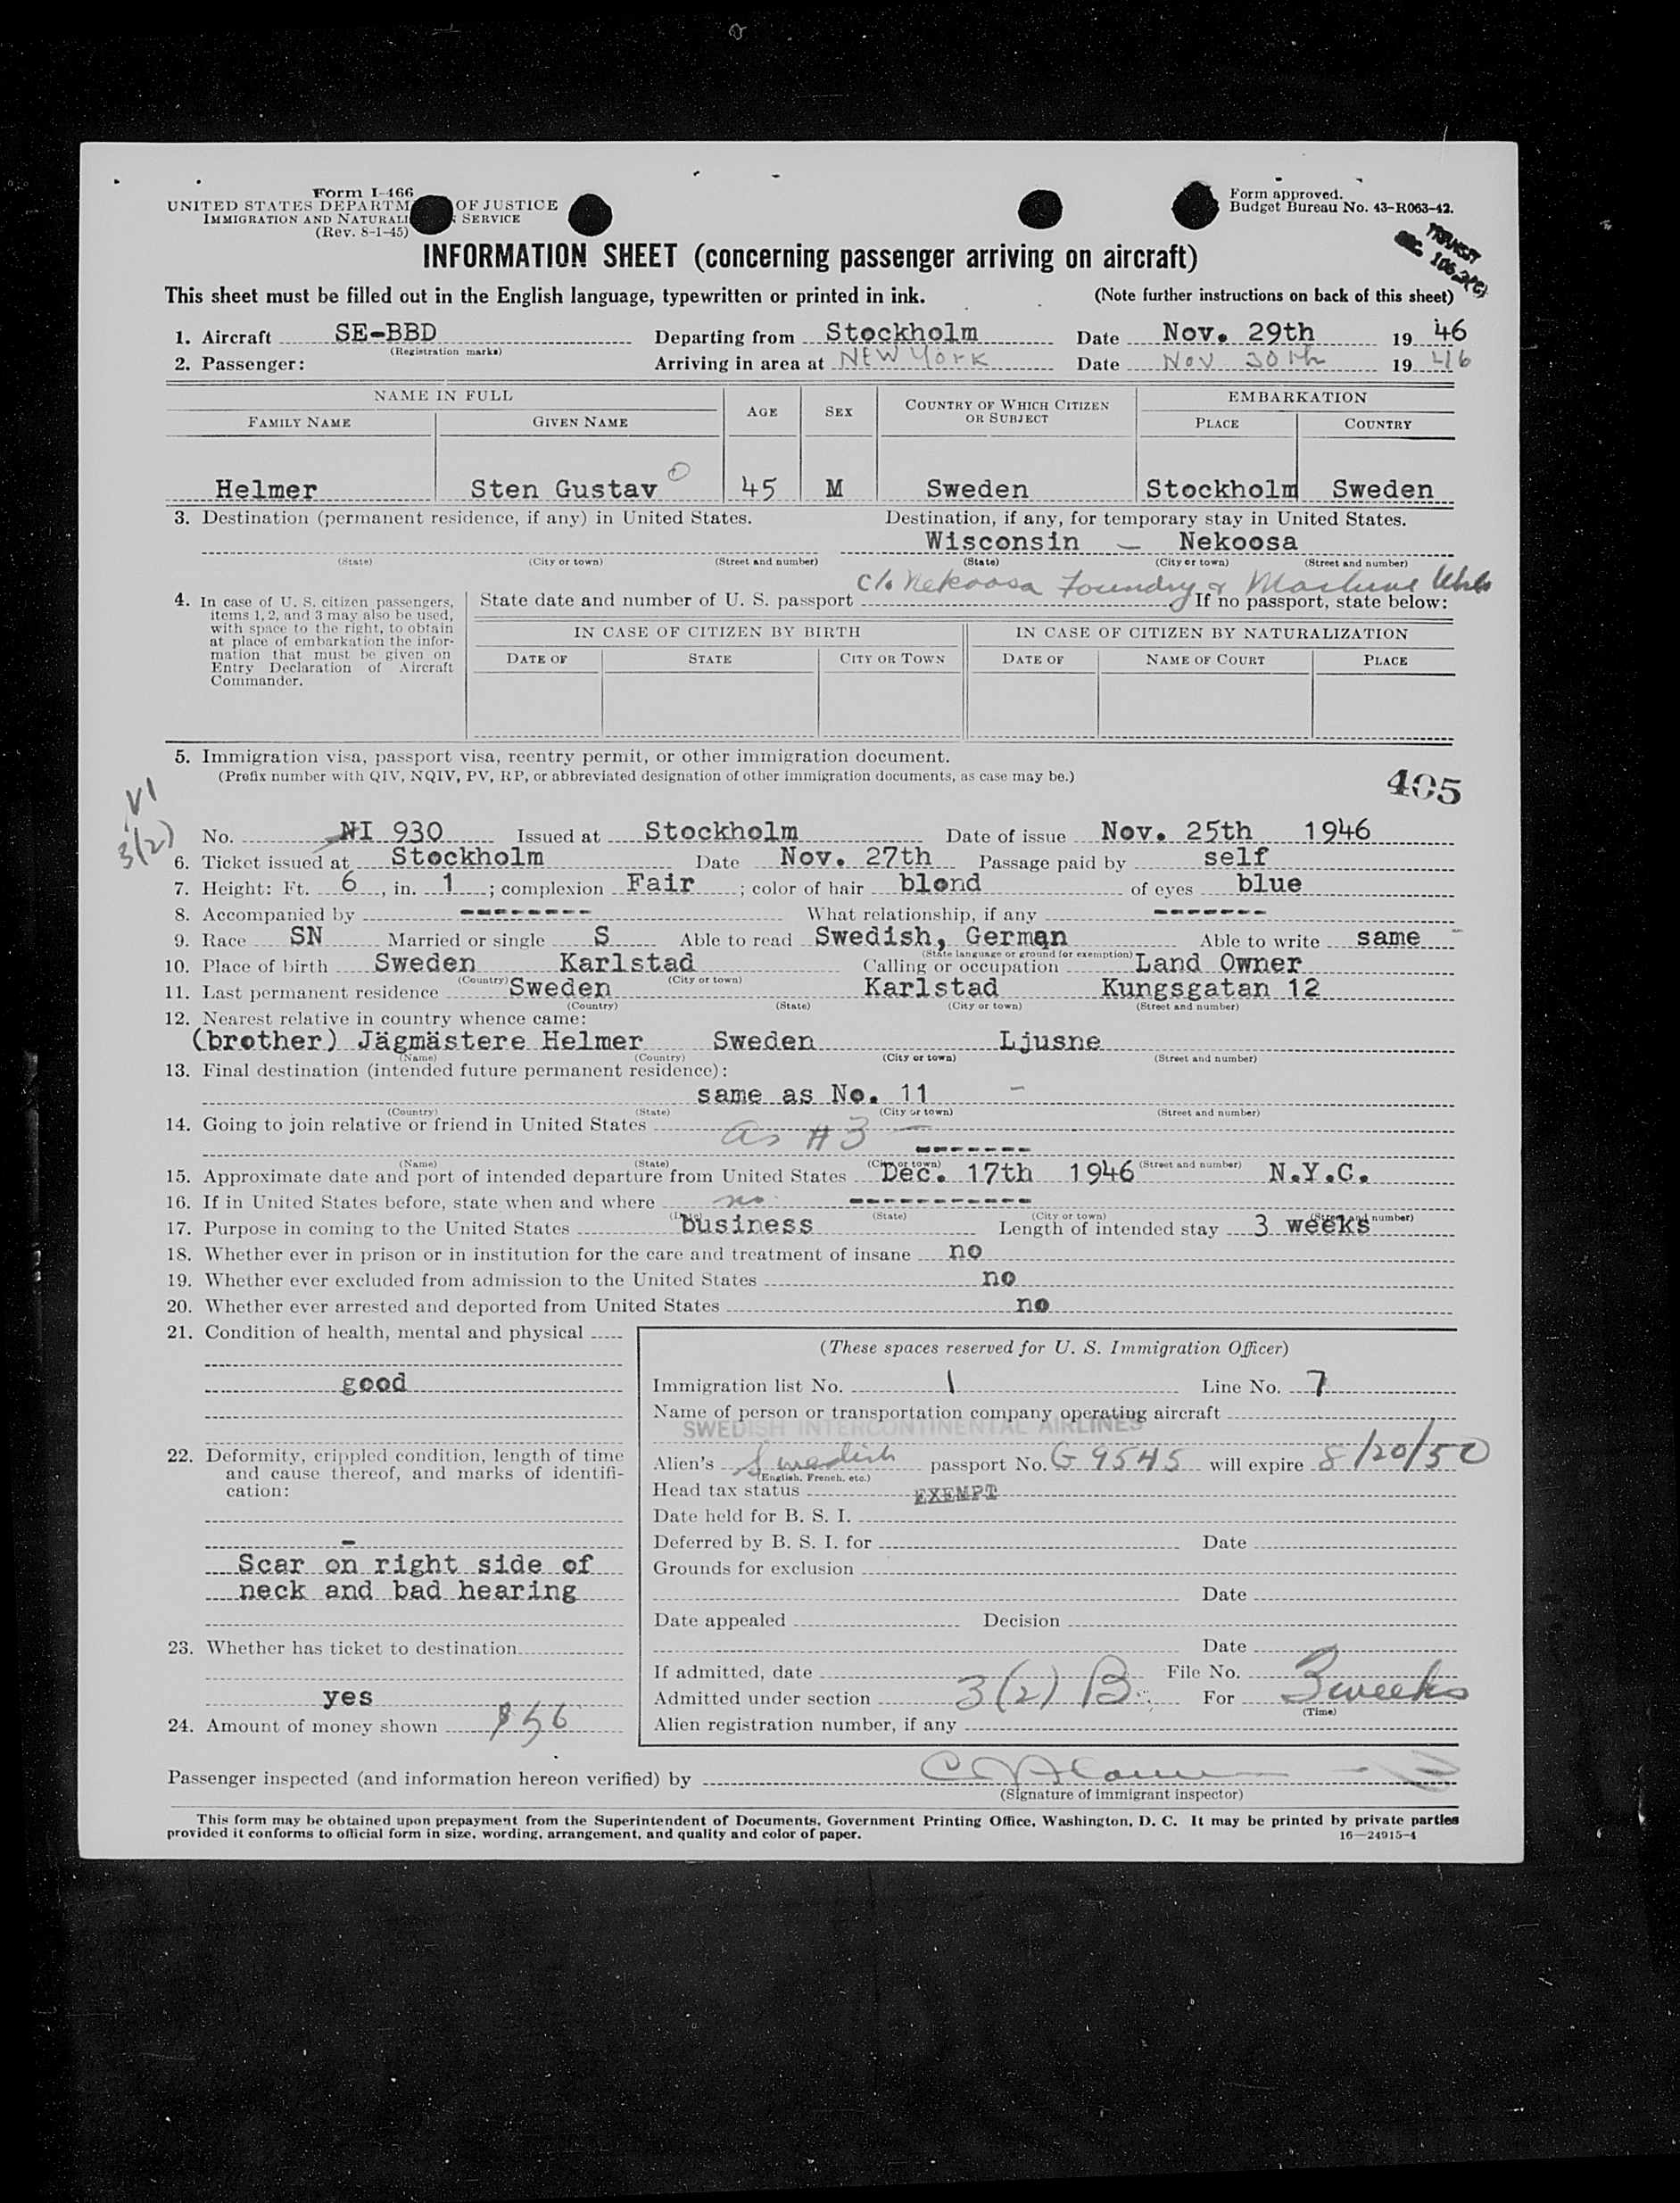 Form I-466
UNITED STATES DEPARTM OF JUSTICE
IMMIGRATION AND NATURALI SERVICE
(Rev. 8-1-45)
Form approved.
Budget Bureau No. 43-R063-42.
TRANSIT
SEC. 106.3(C)
INFORMATION SHEET (concerning passenger arriving on aircraft)
This sheet must be filled out in the English language, typewritten or printed in ink. (Note further instructions on back of this sheet)
1. Aircraft SE-BBD Departing from Stockholm Date Nov. 29th 19 46
(Registration marks)
2. Passenger: Arriving in area at NEW York Date Nov 30th 19 46
NAME IN FULL AGE SEX COUNTRY OF WHICH CITIZEN OR SUBJECT EMBARKATION
FAMILY NAME GIVEN NAME PLACE COUNTRY
Helmer Sten Gustav O 45 M Sweden Stockholm Sweden
3. Destination (permanent residence, if any) in United States. Destination, if any, for temporary stay in United States.
Wisconsin — Nekoosa
(State) (City or town) (Street and number) (State) (City or town) (Street and number)
c/o Nekoosa Foundry & Machine Wks
4. In case of U. S. citizen passengers, items 1, 2, and 3 may also be used, with space to the right, to obtain at place of embarkation the information that must be given on Entry Declaration of Aircraft Commander.
State date and number of U. S. passport If no passport, state below:
IN CASE OF CITIZEN BY BIRTH IN CASE OF CITIZEN BY NATURALIZATION
DATE OF STATE CITY OR TOWN DATE OF NAME OF COURT PLACE
5. Immigration visa, passport visa, reentry permit, or other immigration document.
(Prefix number with QIV, NQIV, PV, RP, or abbreviated designation of other immigration documents, as case may be.)
405
VI
3(2)
No. NI 930 Issued at Stockholm Date of issue Nov. 25th 1946
6. Ticket issued at Stockholm Date Nov. 27th Passage paid by self
7. Height: Ft. 6, in. 1; complexion Fair; color of hair blond of eyes blue
8. Accompanied by -------- What relationship, if any -------
9. Race SN Married or single S Able to read Swedish, German Able to write same
(State language or ground for exemption)
10. Place of birth Sweden Karlstad Calling or occupation Land Owner
(Country) (City or town)
11. Last permanent residence Sweden Karlstad Kungsgatan 12
(Country) (State) (City or town) (Street and number)
12. Nearest relative in country whence came:
(brother) Jägmästere Helmer Sweden Ljusne
(Name) (Country) (City or town) (Street and number)
13. Final destination (intended future permanent residence):
same as No. 11 -
(Country) (State) (City or town) (Street and number)
14. Going to join relative or friend in United States as #3 —
-------
(Name) (State) (City or town) (Street and number)
15. Approximate date and port of intended departure from United States Dec. 17th 1946 N.Y.C.
16. If in United States before, state when and where no -----------
(Date) (State) (City or town) (Street and number)
17. Purpose in coming to the United States business Length of intended stay 3 weeks
18. Whether ever in prison or in institution for the care and treatment of insane no
19. Whether ever excluded from admission to the United States no
20. Whether ever arrested and deported from United States no
21. Condition of health, mental and physical
good
22. Deformity, crippled condition, length of time
and cause thereof, and marks of identifi-
cation:
-
Scar on right side of
neck and bad hearing
23. Whether has ticket to destination
yes
24. Amount of money shown $56
(These spaces reserved for U. S. Immigration Officer)
Immigration list No. 1 Line No. 7
Name of person or transportation company operating aircraft
SWEDISH INTERCONTINENTAL AIRLINES
Alien's Swedish passport No. G 9545 will expire 8/20/50
(English, French, etc.)
Head tax status EXEMPT
Date held for B. S. I.
Deferred by B. S. I. for Date
Grounds for exclusion
Date
Date appealed Decision
Date
If admitted, date File No.
Admitted under section 3(2) B For 3 weeks
(Time)
Alien registration number, if any
Passenger inspected (and information hereon verified) by
(Signature of immigrant inspector)
This form may be obtained upon prepayment from the Superintendent of Documents, Government Printing Office, Washington, D. C. It may be printed by private parties
provided it conforms to official form in size, wording, arrangement, and quality and color of paper. 16—24915-4